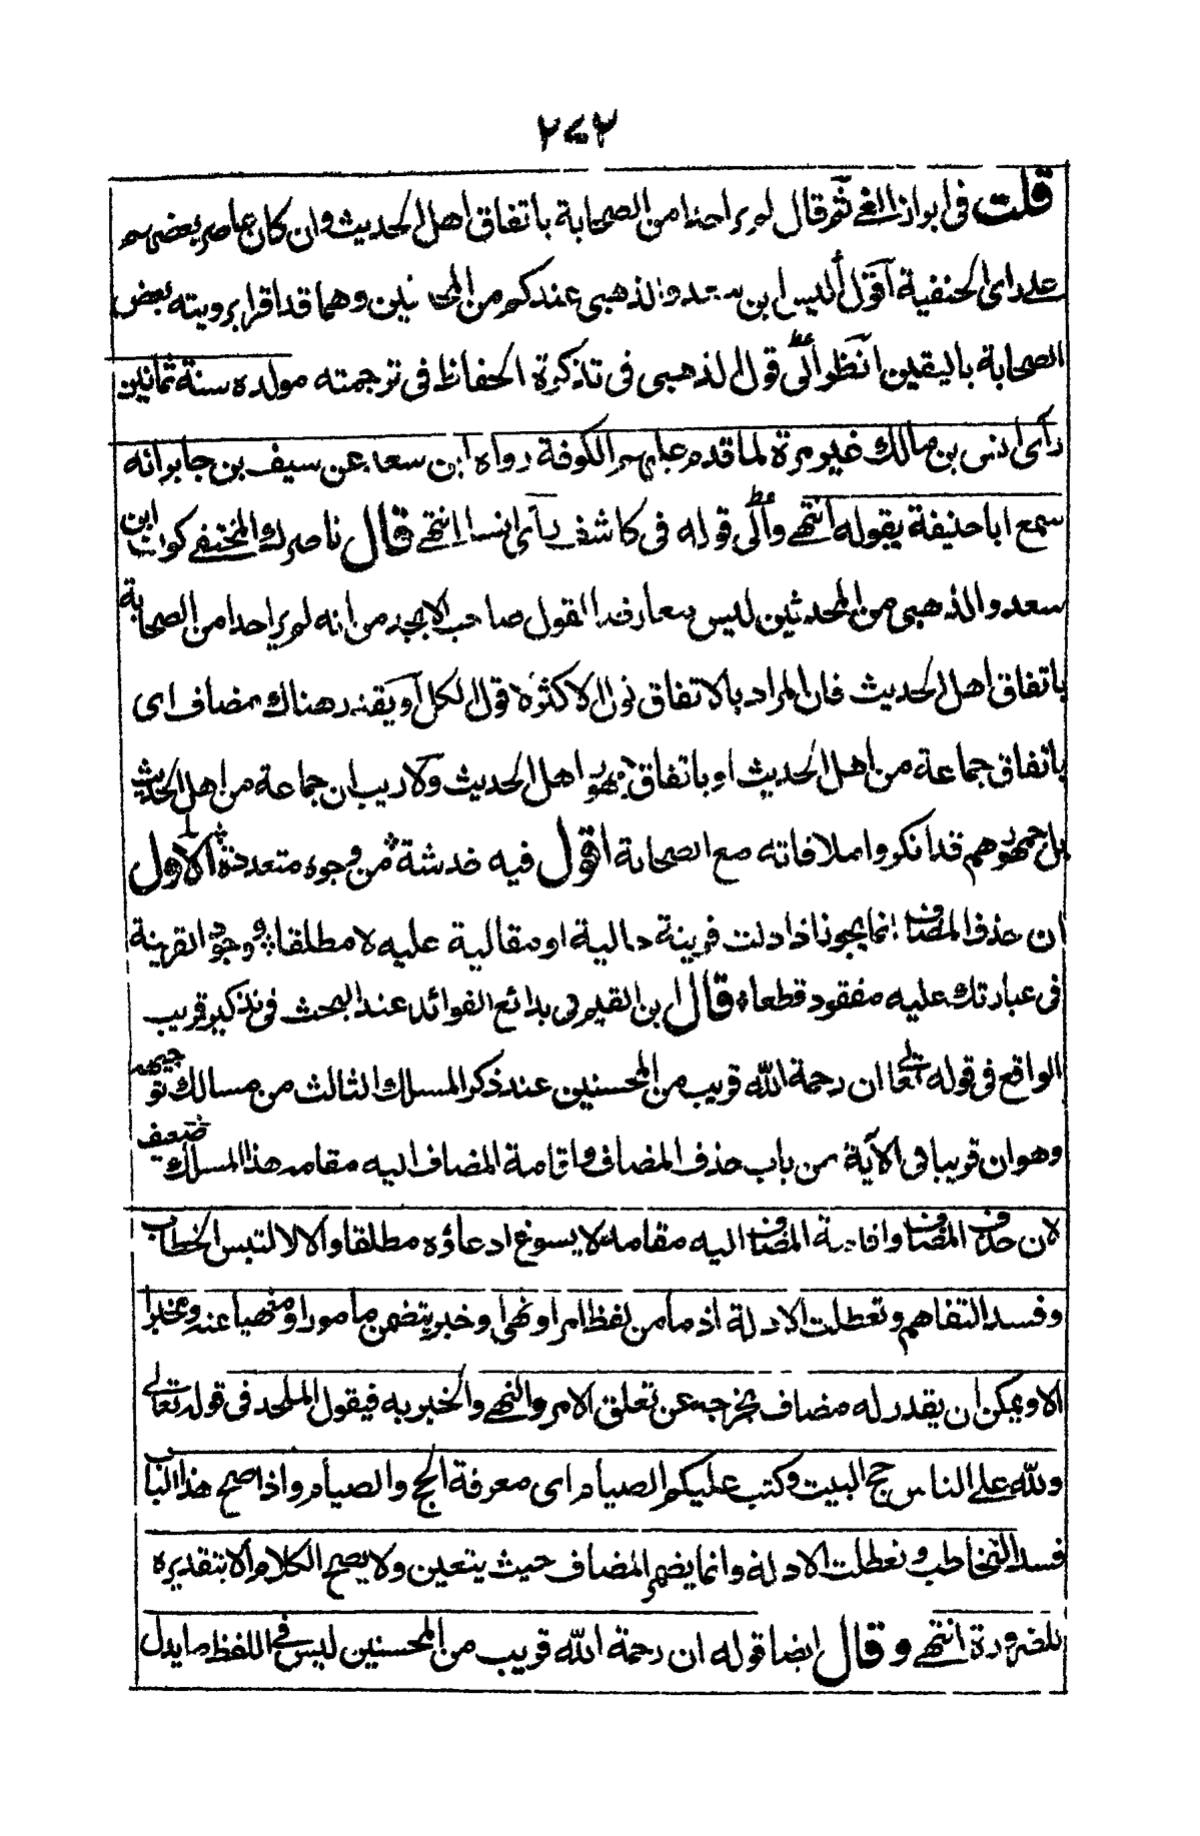 ٢٧٢
قلت فى ابراز الغى ثم قال لم ير احدا من الصحابة باتفاق اهل الحديث وان كان عاصر بعضهم
على رأى الحنفية آقول أليس ابن سعد والذهبى عندكم من المحدثين وهما قد اقرا برويته بعض
الصحابة باليقين انظر الى قول الذهبى فى تذكرة الحفاظ فى ترجمته مولده سنة ثمانين
رأى انس بن مالك غير مرة لما قدم عليهم الكوفة رواه ابن سعد عن سيف بن جابر انه
سمع ابا حنيفة يقوله انتهى والى قوله فى كاشف رأى انسا انتهى قال ناصرك المختفى كون ابن
سعد والذهبى من المحدثين ليس بمعارض لقول صاحب الابجد من انه لم ير احدا من الصحابة
باتفاق اهل الحديث فان المراد بالاتفاق قول الاكثر لا قول الكل او يقدر هناك مضاف اى
باتفاق جماعة من اهل الحديث او باتفاق جمهور اهل الحديث ولا ريب ان جماعة من اهل الحديث
بل جمهورهم قد انكروا ملاقاته مع الصحابة اقول فيه خدشة من وجوه متعددة الاول
ان حذف المضاف انما يجوز اذا دلت قرينة حالية او مقالية عليه لا مطلقا ووجود القرينة
فى عبارتك عليه مفقود قطعا قال ابن القيم فى بدائع الفوائد عند البحث فى تذكير قريب
الواقع فى قوله تعالى ان رحمة الله قريب من المحسنين عند ذكر المسلك الثالث من مسالك توجيهه
وهو ان قريبا فى الآية من باب حذف المضاف واقامة المضاف اليه مقامه هذا المسلك ضعيف
لان حذف المضاف واقامة المضاف اليه مقامه لا يسوغ ادعاؤه مطلقا والا لالتبس الخطاب
وفسد التفاهم وتعطلت الادلة اذ ما من لفظ امر او نهى او خبر يتضمن مأمورا او منهيا عنه ومخبرا
الا ويمكن ان يقدر له مضاف يخرجه عن تعلق الامر والنهى والخبر به فيقول الملحد فى قوله تعالى
ولله على الناس حج البيت وكتب عليكم الصيام اى معرفة الحج والصيام واذا صح هذا الباب
فسد التخاطب وتعطلت الادلة وانما يضمر المضاف حيث يتعين ولا يصح الكلام الا بتقديره
للضرورة انتهى وقال ايضا قوله ان رحمة الله قريب من المحسنين ليس فى اللفظ ما يدل